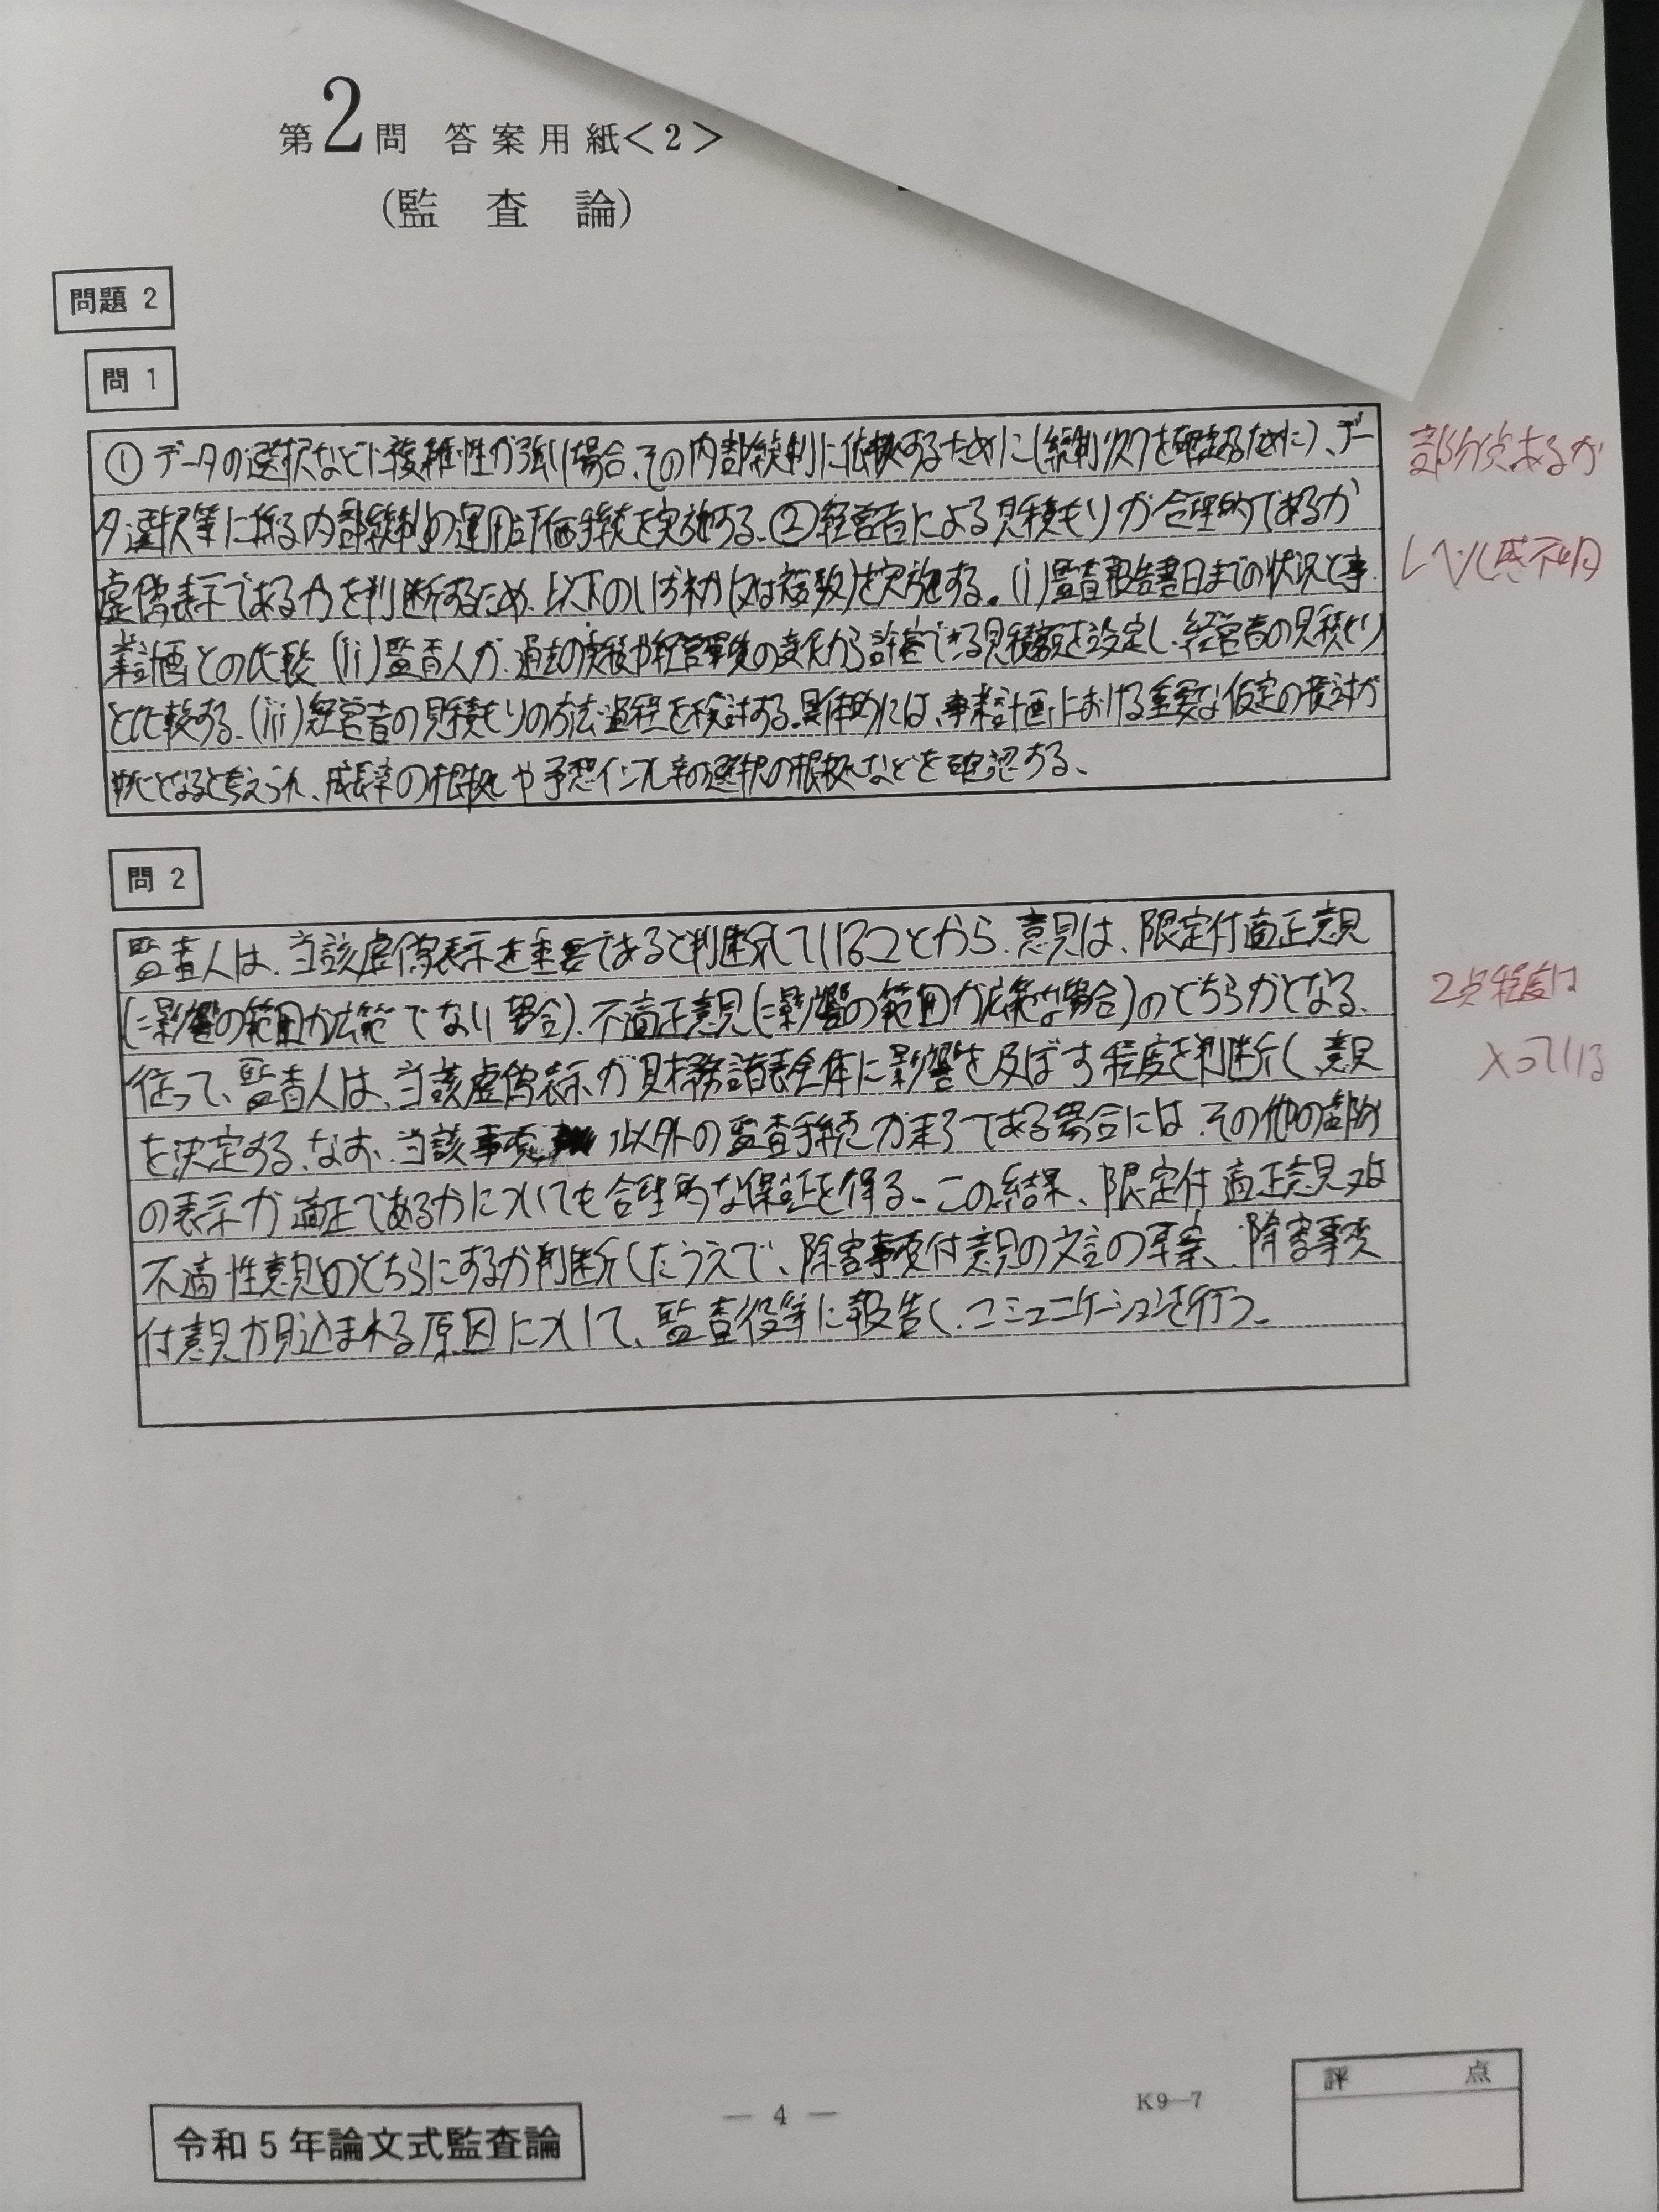 第2問 答案用紙<2>
(監査論)
問題 2
問 1
①データの選択などに複雑性が強い場合、その内部統制に依拠するために(統制リスクを確かめるために)、デー
タ選択等に係る内部統制の運用評価手続を実施する。②経営者による見積もりが合理的であるか
虚偽表示であるかを判断するため、以下のいずれか(又は複数)を実施する。(i)監査報告書日までの状況と事
業計画との比較 (ii)監査人が、過去の実績や経営環境の変化から許容できる見積額を設定し、経営者の見積もり
と比較する。(iii)経営者の見積もりの方法・過程を検討する。具体的には、事業計画における重要な仮定の検討が
必要になると考えられ、成長率の根拠や予想インフレ率の選択の根拠などを確認する。
部分点あるが
レベル感不明
問 2
監査人は、当該虚偽表示を重要であると判断していることから、意見は、限定付適正意見
(影響の範囲が広範でない場合)、不適正意見(影響の範囲が広範な場合)のどちらかとなる。
従って、監査人は、当該虚偽表示が財務諸表全体に影響を及ぼす程度を判断し、意見
を決定する。なお、当該事項以外の監査手続が未了である場合には、その他の部分
の表示が適正であるかについても合理的な保証を得る。この結果、限定付適正意見又は
不適性意見のどちらにするか判断したうえで、除外事項付意見の文言の草案、除外事項
付意見が見込まれる原因について、監査役等に報告し、コミュニケーションを行う。
2点程度は
入っている
令和5年論文式監査論
— 4 —
K9—7
評 点